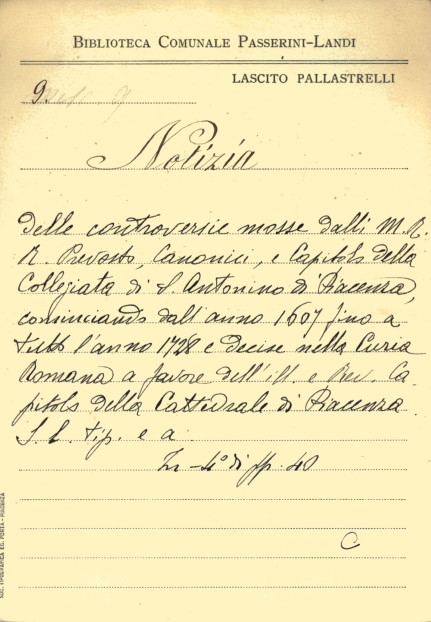 BIBLIOTECA COMUNALE PASSERINI-LANDI
LASCITO PALLASTRELLI
9
Notizia
delle controversie mosse dalli M. R.
R. Prevosto, Canonici, e Capitolo della
Collegiata di S. Antonino di Piacenza,
cominciando dall'anno 1607 fino a
tutto l'anno 1728 e decise nella Curia
Romana a favore dell'ill. e Rev. Ca
pitolo della Cattedrale di Piacenza
S. l. tip. e a
In - 4° di pp. 40
C